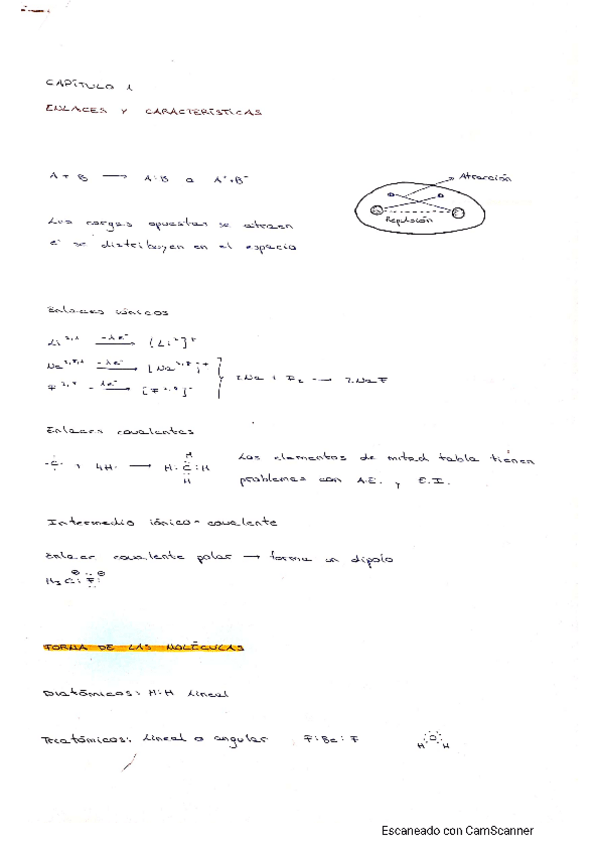 CAPÍTULO 1
ENLACES Y CARACTERÍSTICAS
A + B → A:B o A⁺:B⁻
Atracción
Repulsión
Las cargas opuestas se atraen
e se distribuyen en el espacio
Enlaces iónicos
Li²,¹ -1e⁻ → [Li²]⁺
Na²,⁸,¹ -1e⁻ → [Na²,⁸]⁺
F²,⁷ 1e⁻ → [F²,⁸]⁻
2Na + F₂ → 2NaF
Enlaces covalentes
·C· + 4H· → H:C:H
H
H
Los elementos de mitad tabla tienen
problemas con A.E. y E.I.
Intermedio iónico - covalente
Enlace covalente polar → forma un dipolo
⊕ ⊖
H₃C:F:
FORMA DE LAS MOLÉCULAS
Diatómicos: H:H lineal
Triatómicos: lineal o angular F:Be:F
O
H H
Escaneado con CamScanner